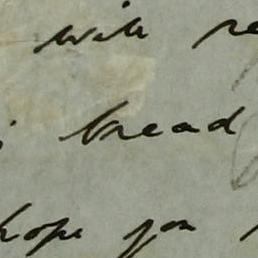 will re
bread
hope you